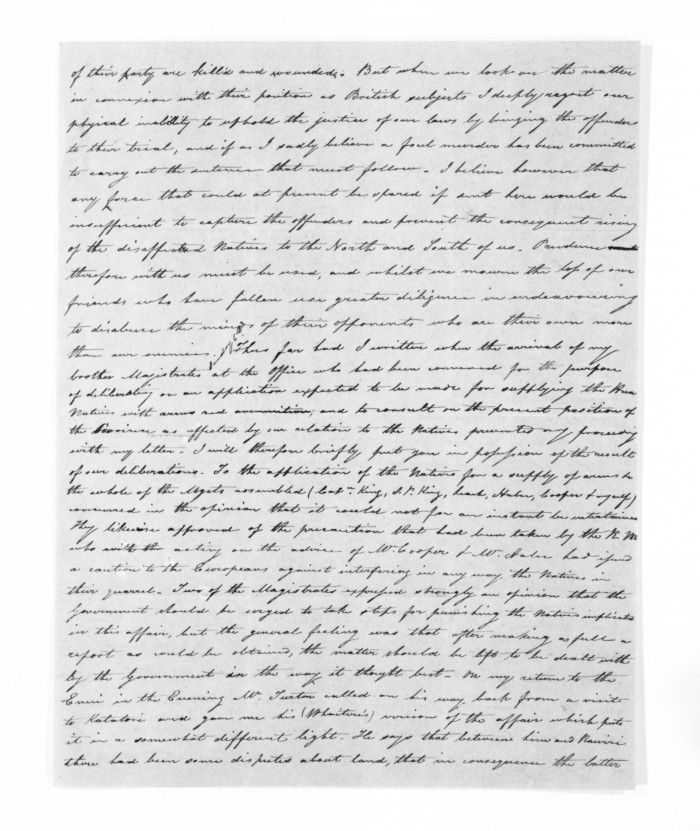 of their party are kill'd and wounded. But when we look on the matter
in connexion with their position as British subjects I deeply regret our
physical inability to uphold the justice of our laws by bringing the offenders
to their trial, and if as I sadly believe a foul murder has been committed
to carry out the sentence that must follow. I believe however that
any force that could at present be spared if sent here would be
insufficient to capture the offenders and prevent the consequent rising
of the disaffected Natives to the North and South of us. Prudence
therefore with us must be used, and whilst we mourn the loss of our
friends who have fallen use greater diligence in endeavouring
to disabuse the minds of their opponents who are their own more
than our enemies. Thus far had I written when the arrival of my
brother Magistrates at the Office who had been convened for the purpose
of deliberating on an application expected to be made for supplying the
Natives with arms and ammunition; and to consult on the present position of
the Province as affected by our relation to the Natives prevented my proceeding
with my letter. I will therefore briefly put you in possession of the result
of our deliberations. To the application of the Natives for a supply of arms &c
the whole of the Magts assembled (Capt. King, King, Leech, Halse, Cooper & myself)
concurred in the opinion that it could not for an instant be entertained
They likewise approved of the precaution that had been taken by the R. M.
who acting on the advice of Mr. Cooper & Mr. Halse had issued
a caution to the Europeans against interfering in any way the Natives in
their quarrel. Two of the Magistrates expressed strongly an opinion that the
Government should be urged to take steps for punishing the Natives implicated
in this affair, but the general feeling was that after making as full a
report as could be obtained, the matter should be left to be dealt with
by the Government in the way it thought best. On my return to the
Henui in the Evening Mr. Turton called on his way back from a visit
to Katatore and gave me his (Whaitere's) version of the affair which puts
it in a somewhat different light. He says that between him and Rawiri
there had been some disputes about land, that in consequence the latter